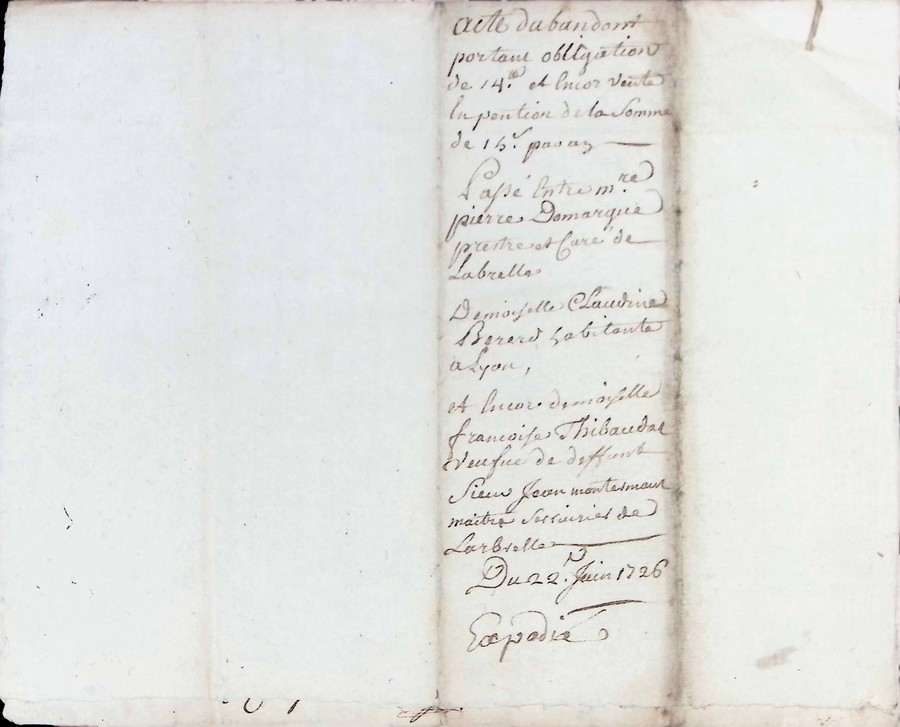 acte dabandont
portant obligation
de 14.ᵗᵗ et Encor vente
En pention de la Somme
de 15.ᵗ par an
Passé Entre m.re
pierre Demarque
prestre et Curé de
Labrelle
Demoiselle CLaudine
Bererd habitante
a Lyon,
et Encor demoiselle
francoise Thibaudat
veufue de deffunt
Sieur Jean montermant
maitre Serrurier de
Larbrelle
Du 22.e Juin 1726
Expedié